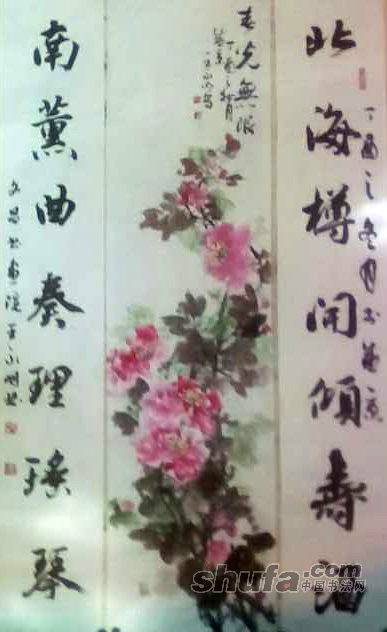 北海樽開傾壽酒
丁酉之冬月
春光無限
南薰曲奏理瑤琴
shufa.com
中国书法网